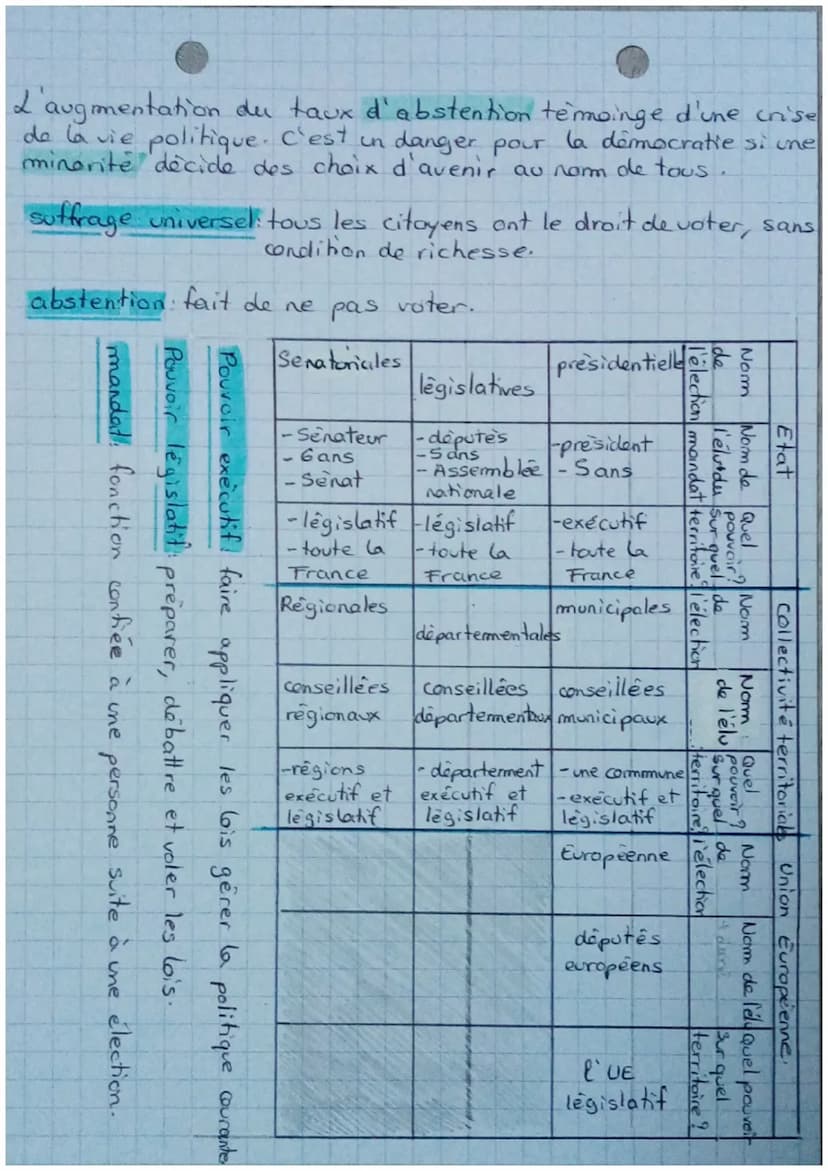 L'augmentation du taux d'abstention tèmoinge d'une crise
de la vie politique. C'est un danger pour la démocratie si une
minorité décide des choix d'avenir au nom de tous.
suffrage universel: tous les citoyens ont le droit de voter, sans
condition de richesse.
abstention: fait de ne pas voter.
Etat
Nom de l'élection
Nom de l'élu+du mandat
Quel pouvoir? sur quel territoire?
présidentielle
-président
- 5 ans
-exécutif
- toute la
France
législatives
-députés
-5 ans
- Assemblée
nationale
-législatif
-toute la
France
Senatoriales
-Sénateur
- 6ans
- Sénat
-législatif
-toute la
France
Collectivité territoriales
Nom de l'élection
Nom : de l'élu
Quel pouvoir? sur quel territoire?
municipales
conseillées
municipaux
- une commune
-exécutif et
législatif
départementales
conseillées
départementaux
- département
exécutif et
législatif
Régionales
conseillées
régionaux
-régions
exécutif et
législatif
Union Européenne.
Nom de l'élection
Nom de l'élu
quel pouvoir sur quel territoire?
Européenne
députés
européens
l'UE
législatif
Pouvoir exécutif: faire appliquer les lois gérer la politique courante
Pouvoir législatif: préparer, débattre et voter les lois.
mandat: fonction confiée à une personne suite à une élection.